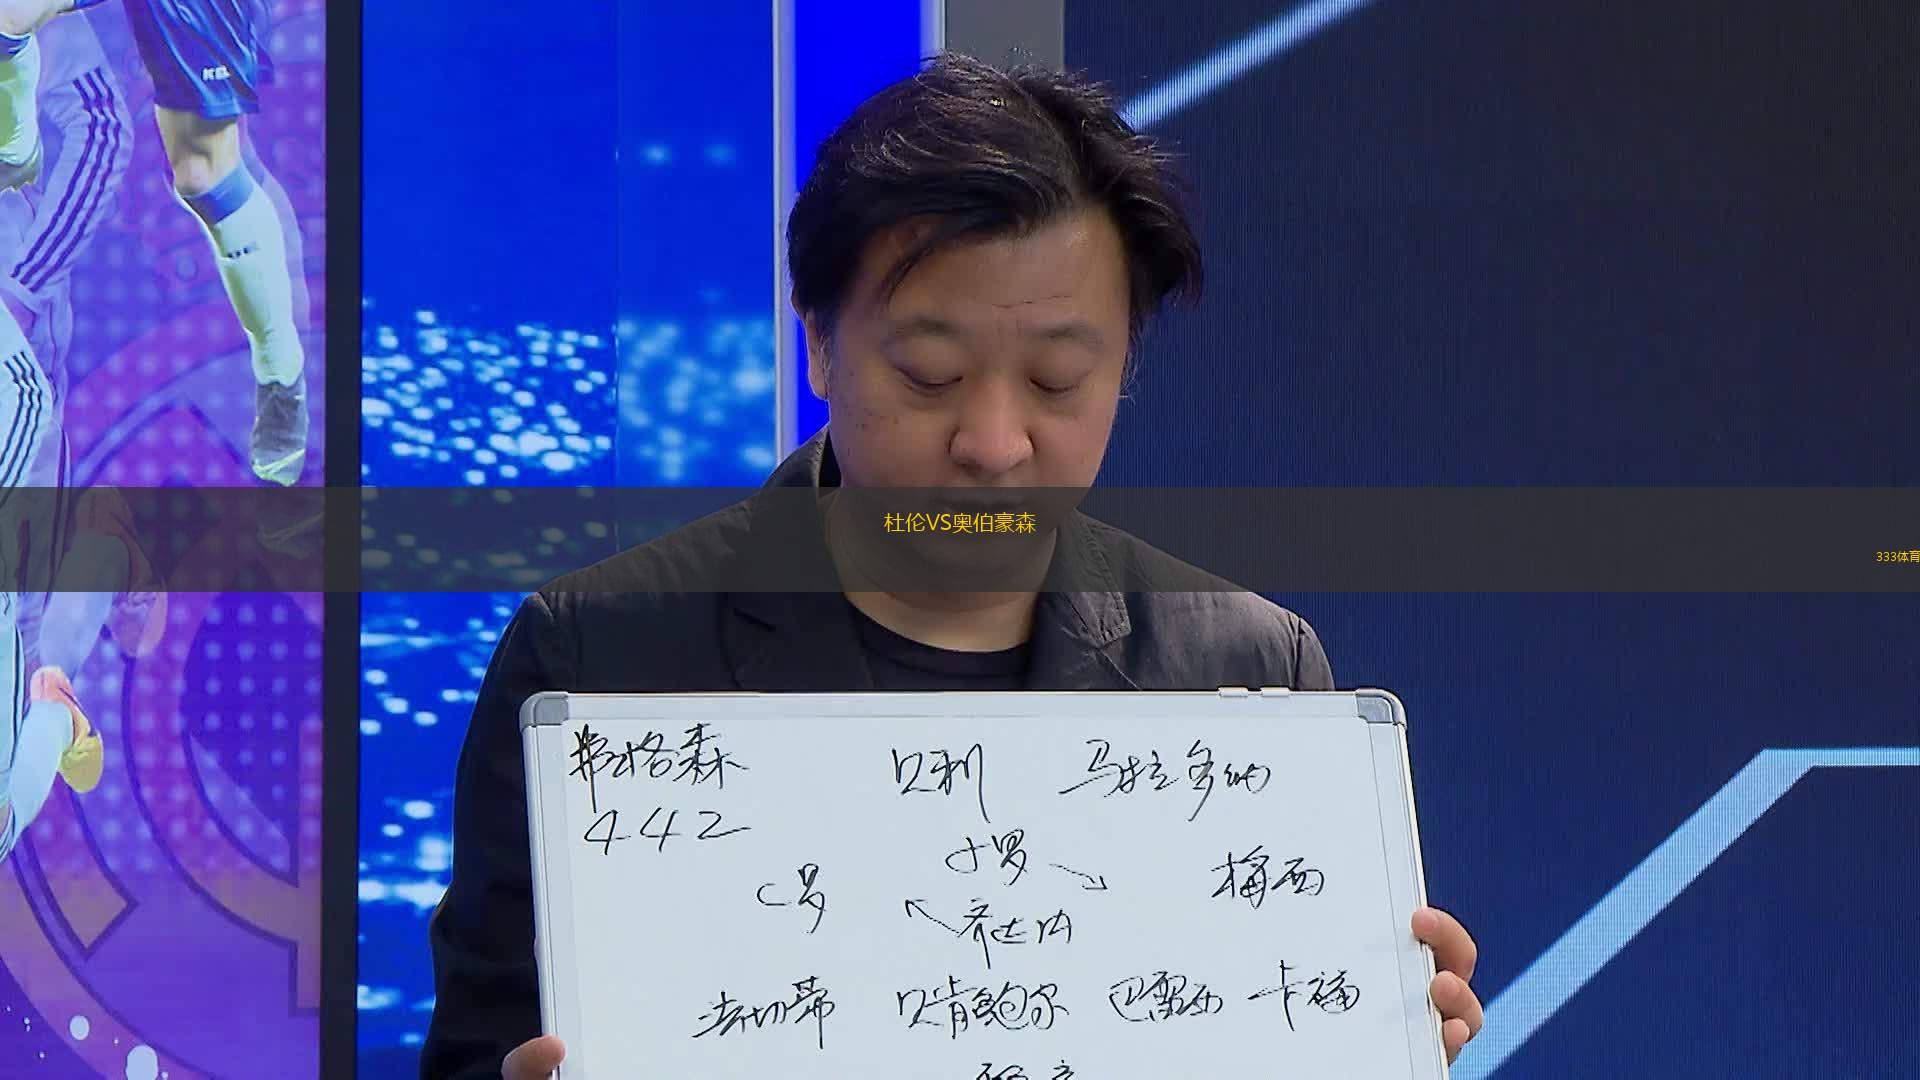 杜伦VS奥伯豪森
333体育
弗格森 贝利 马拉多纳
442
小罗
C罗 梅西
齐达内
法切蒂 贝肯鲍尔 巴雷西 卡福